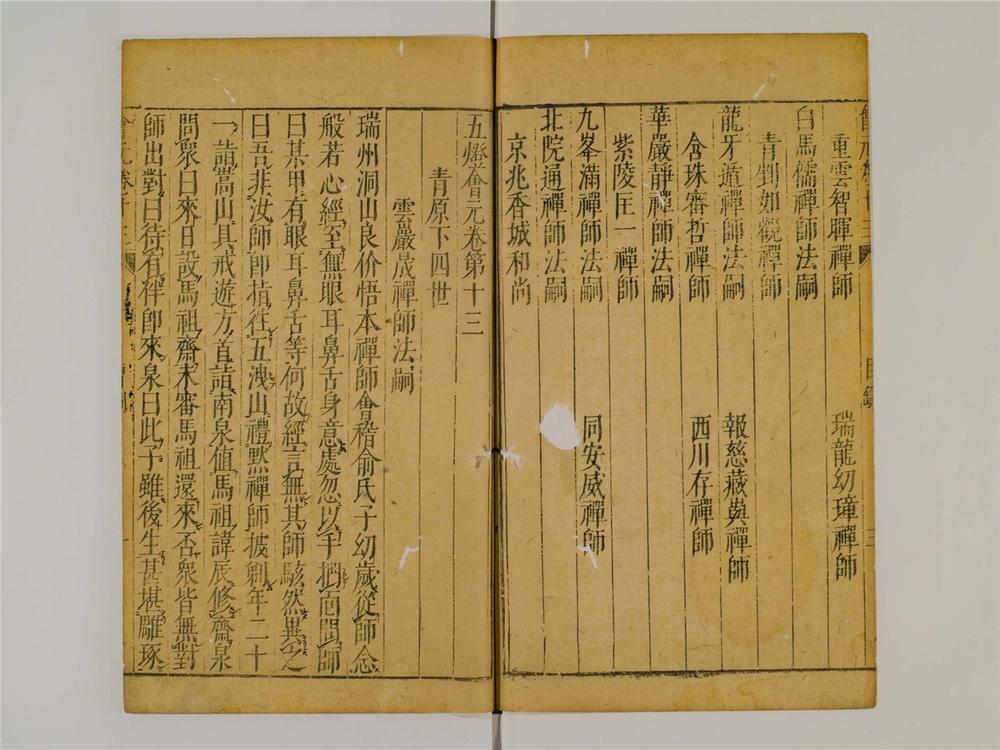 重雲智暉禪師　瑞龍幼璋禪師
白馬儒禪師法嗣
青剉如觀禪師
龍牙遁禪師法嗣　報慈藏嶼禪師
含珠審哲禪師　西川存禪師
華嚴靜禪師法嗣
紫陵匡一禪師
九峯滿禪師法嗣　同安威禪師
北院通禪師法嗣
京兆香城和尚
五燈會元卷第十三
青原下四世
雲巖晟禪師法嗣
瑞州洞山良价悟本禪師會稽俞氏子幼歲從師念
般若心經至無眼耳鼻舌身意處忽以手捫面問師
曰某甲有眼耳鼻舌等何故經言無其師駭然異之
曰吾非汝師卽指往五洩山禮默禪師披剃年二十
一詣嵩山具戒遊方首詣南泉值馬祖諱辰修齋泉
問衆曰來日設馬祖齋未審馬祖還來否衆皆無對
師出對曰待有伴卽來泉曰此子雖後生甚堪雕琢